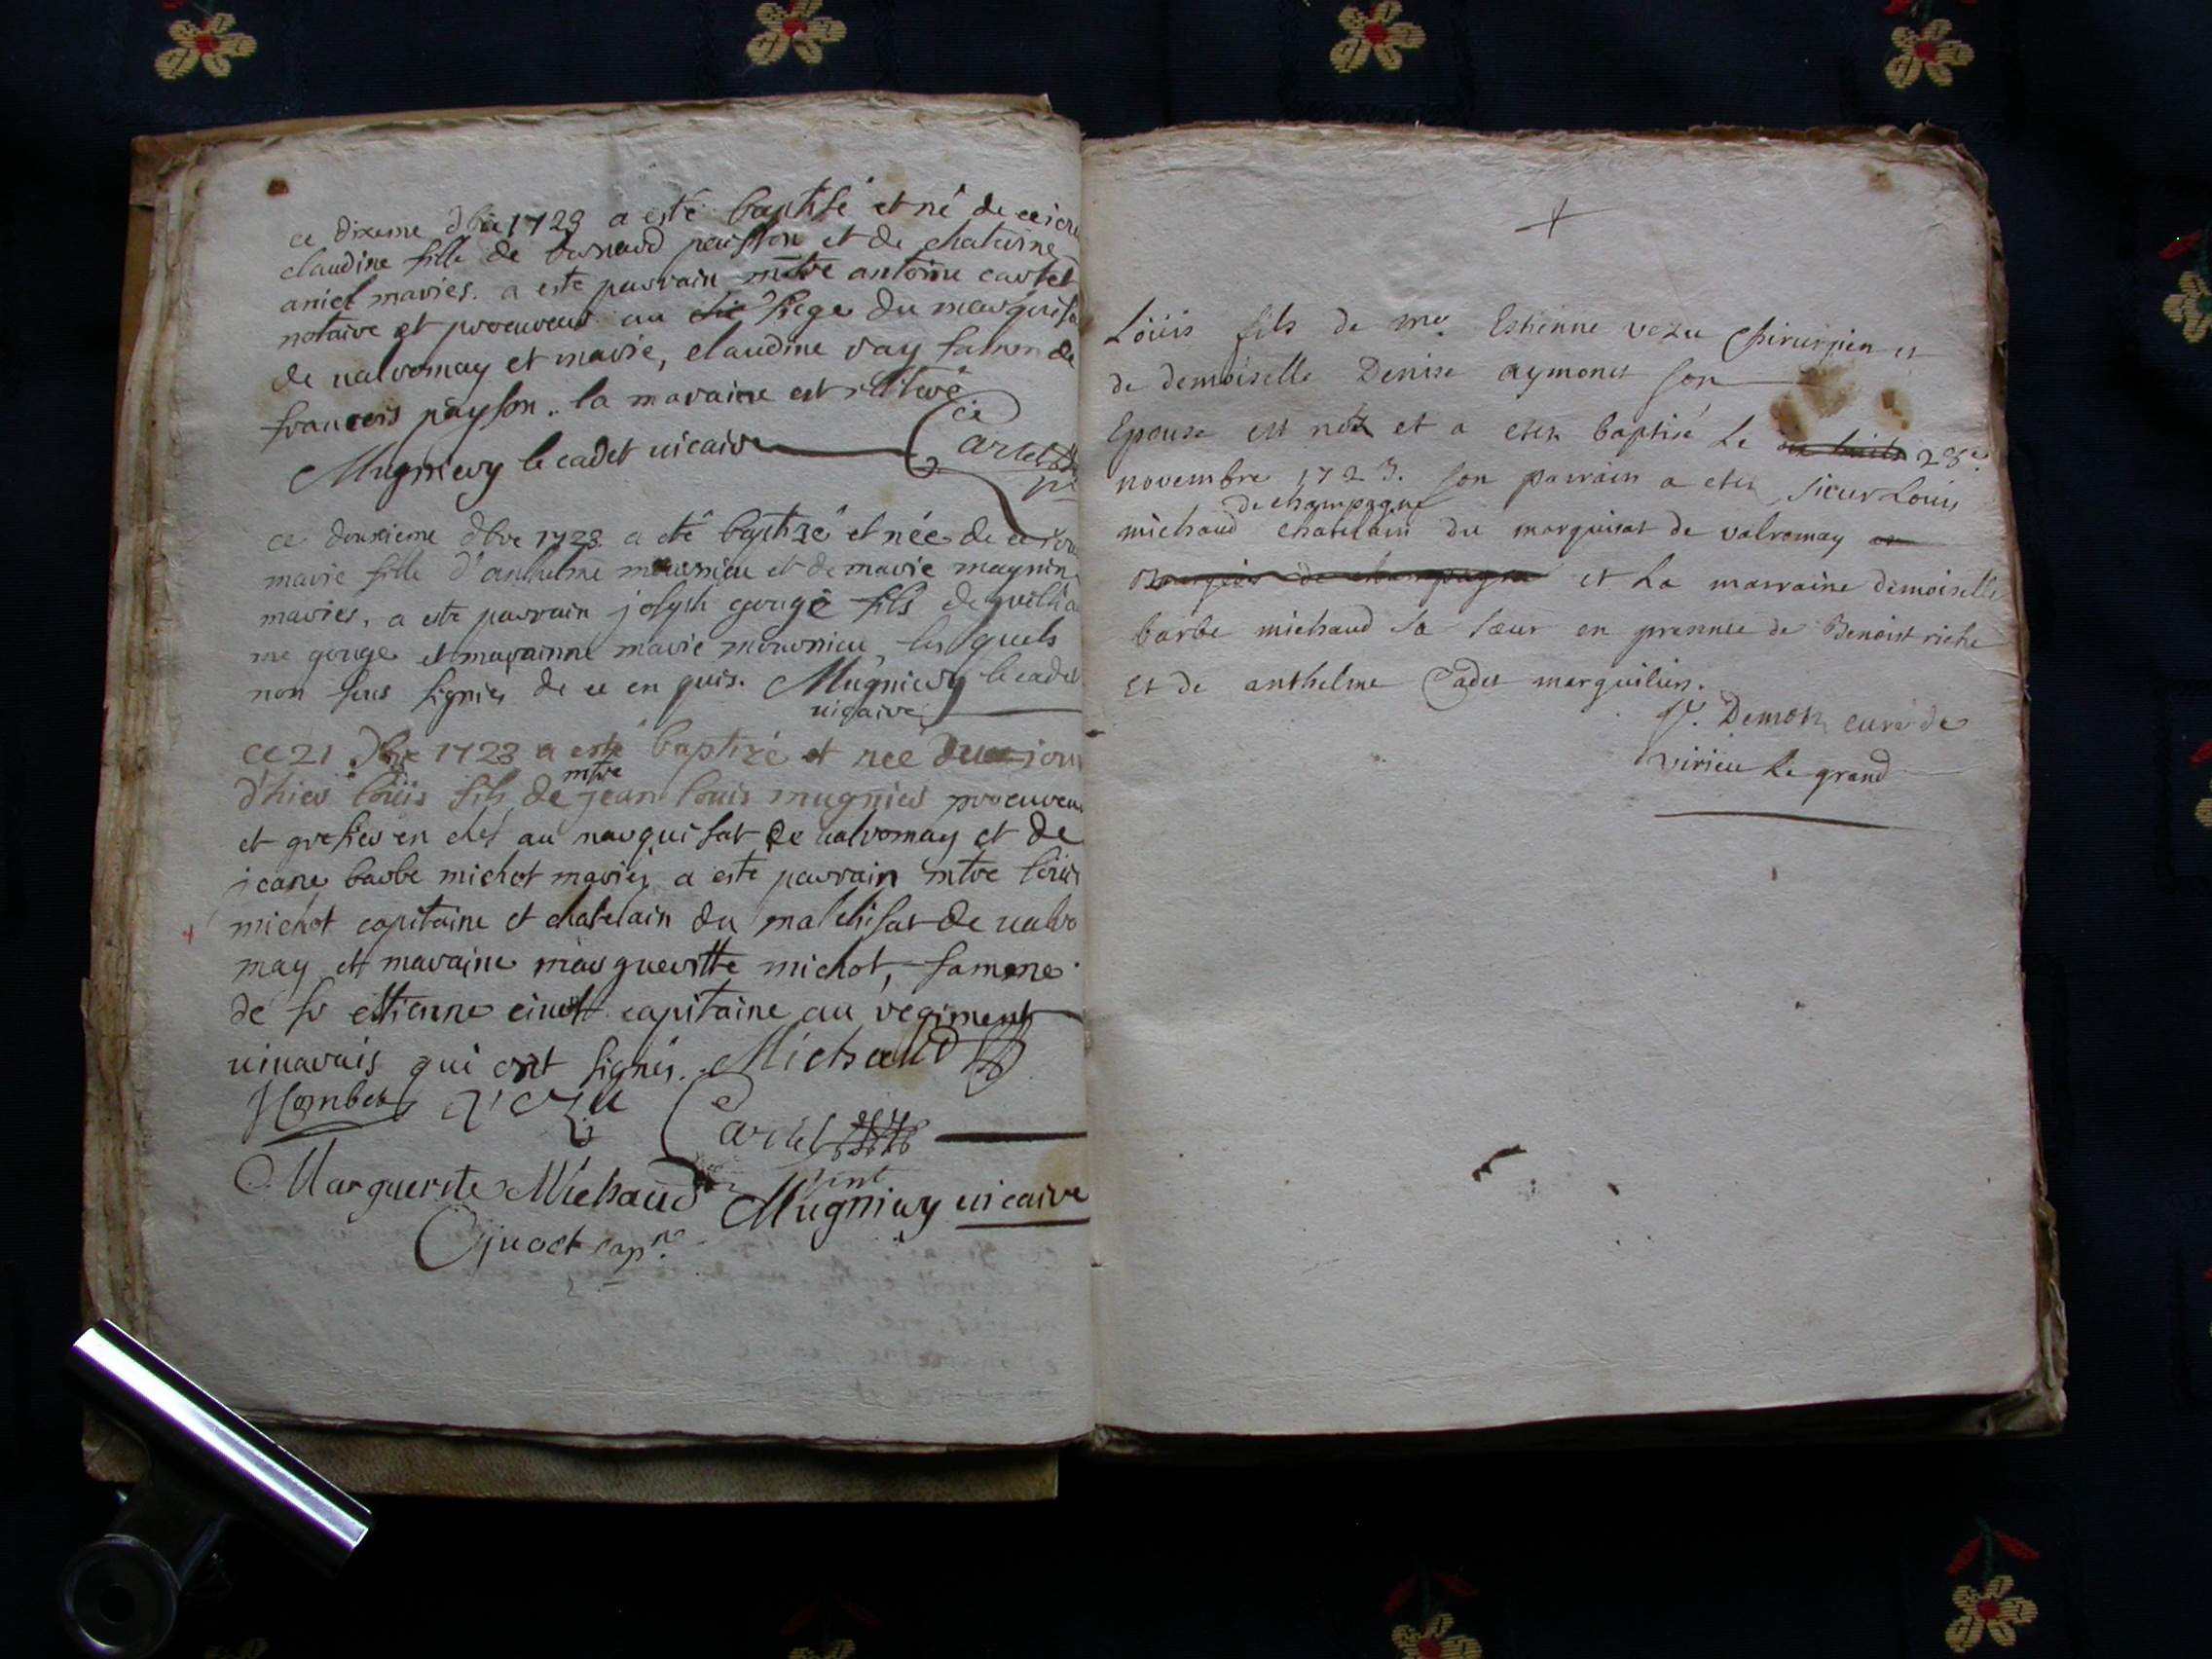 ce dixeme dbre 1723 a esté baptisé et né de ce jour
claudine fille de bernard paisson et de chaterine
aniel maries. a este parrain mtre antoine cartel
notaire et procureur au siege du marquisa
de valromay et marie, claudine ray famme de
francois payson. la maraine est illiteré
Mugniery le cadet vicaire Cartel
ce deuxieme dbre 1723 a eté baptizé et née de ce jour
marie fille d'anthelme mournieu et de marie magnin
maries, a este parrain joseph gouge fils de guillia
me gouge et maraine marie mournieu, les quels
non seus signier de ce en quis. Mugniery le cadet
vicaire
ce 21 dbre 1723 a esté baptizé et nee du jour
mtre
d'hier loüis fils de jean louis mugnier procureur
et grefier en chef au marquisat de valromay et de
jeane barbe michot mariés a este parrain mtre loüis
michot capitaine et chatelain du malchisat de valro
may et maraine margueritte michot, famme
de sr estienne cinet capitaine au regiment
vivarais qui ont signés. Michaud
Hombert Vezu Cartel
Marguerite Michaud Mugniery vicaire
Cjuoct capne
Loüis fils de me Estienne vezu Chirurgien et
de demoiselle Denise aymonet son
Epouse est né et a esté baptisé Le dix huite 28e
novembre 1723. son parrain a esté sieur Louis
de champagne
michaud chatelain du marquisat de valromay et
Bourgeois de champagne et La marraine demoiselle
barbe michaud sa sœur en presence de Benoist riche
et de anthelme Cadet marguilier.
Demotz curé de
virieu Le grand